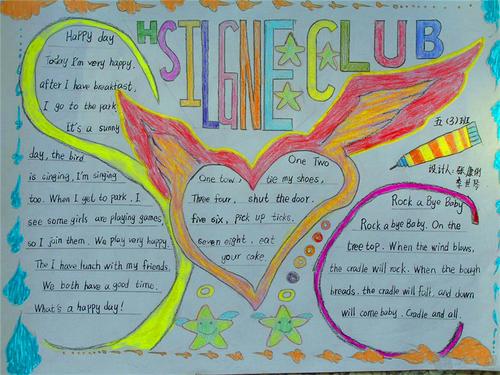 HSILGNE CLUB
Happy day
Today I'm very happy.
after I have breakfast,
I go to the park
It's a sunny
day, the bird
is singing, I'm singing
too. When I get to park. I
see some girls are playing games,
so I join them. We play very happy.
The I have lunch with my friends,
We both have a good time.
What's a happy day!
One Two
One tow, tie my shoes,
Three four, shut the door.
five six, pick up ticks.
seven eight, eat
your cake.
五(3)班
设计人:
Rock a Bye Baby
Rock a bye Baby. On the
tree top. When the wind blows,
the cradle will rock. When the bough
breads. the cradle will falt. and down
will come baby. Cradle and all.